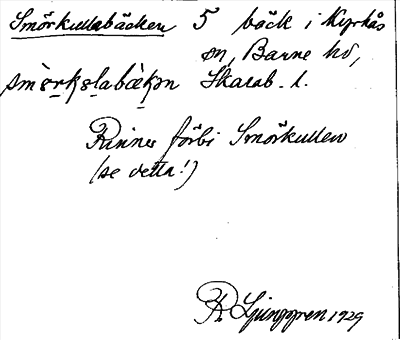 Smörkullabäcken 5 bäck i Kyrkås
sn, Barne hd,
Skarab. l.
Rinner förbi Smörkullen
(se detta!)
R. Ljunggren 1929